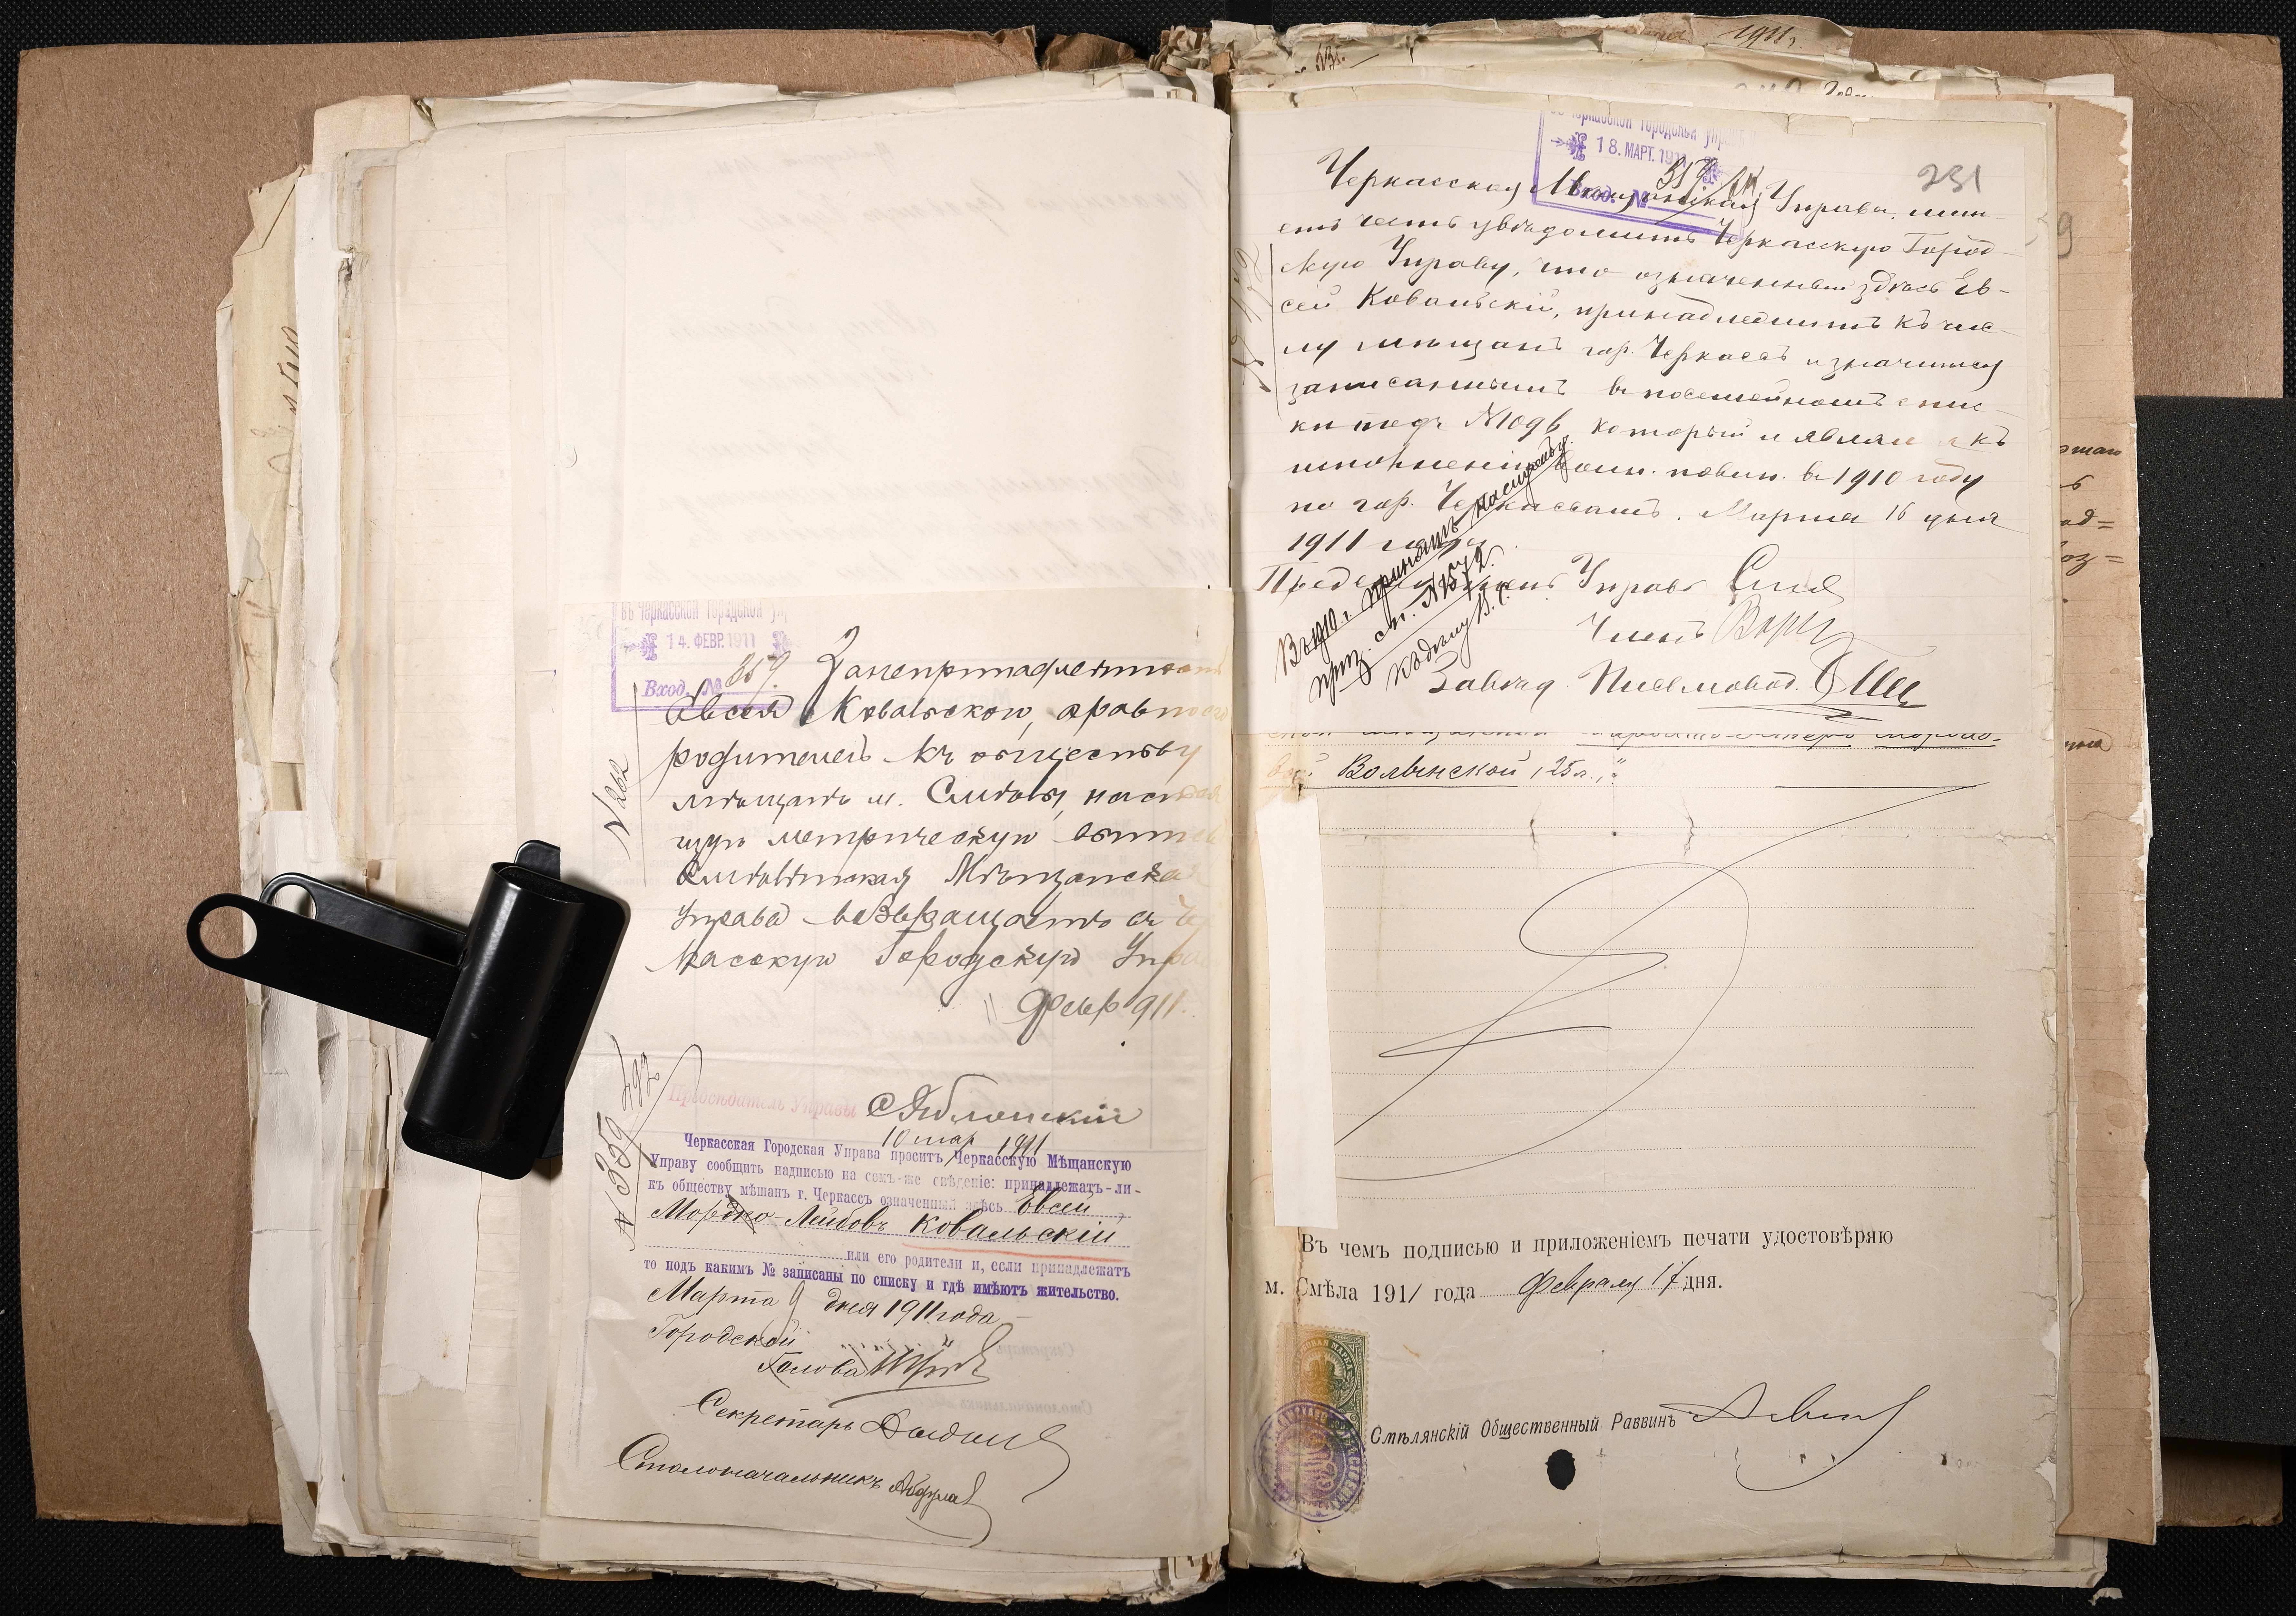 въ Черкасской Городской Упр
14. ФЕВР. 1911
Вход. № 859.
За непринадлежност
Евсея Ковальскаго, а равно его
родителей къ обществу
мѣщанъ м. Смѣлы, насто
щую метрическую выпис
Смѣлянская Мѣщанская
Управа возвращаетъ въ Чер
касскую Городскую Упра
Февр 911.
№ 262
Предсѣдатель Управы СЯблонскій
10 мар 1911
№ 1359
Черкасская Городская Управа проситъ Черкасскую Мѣщанскую
Управу сообщить надписью на семъ-же свѣдѣніе: принадлежатъ-ли-
къ обществу мѣщанъ г. Черкассъ означенный здѣсь Евсей
Мордко-Лейбовъ Ковальскій
или его родители и, если принадлежатъ
то подъ какимъ № записаны по списку и гдѣ имѣютъ жительство.
Марта 9 дня 1911 года
Городской
Голова
Секретарь
Столоначальникъ
1911 г.
231
въ Черкасской Городской Упр
18. МАРТ. 1911
Вход. №
Черкасская Мѣщанская Управа, имѣ-
етъ честь увѣдомить Черкасскую Город-
скую Управу, что означенный здѣсь Ев-
сей Ковальскій, принадлежитъ къ чис-
лу мѣщанъ гор. Черкассъ и значится
записаннымъ въ посемейномъ спис-
кѣ подъ № 1096, который и являлся къ
исполненію воин. повин. въ 1910 году
по гор. Черкассамъ. Марта 16 дня
1911 года
Предсѣдатель Управы
Членъ
Завѣд. Письмовод.
Въ 1910 г. принятъ на службу.
приз. сп. №
къ дѣлу В. С.
Волынской, 25 л.,"
Въ чемъ подписью и приложеніемъ печати удостовѣряю
м. Смѣла 1911 года Февраля 17 дня.
Смѣлянскій Общественный Раввинъ